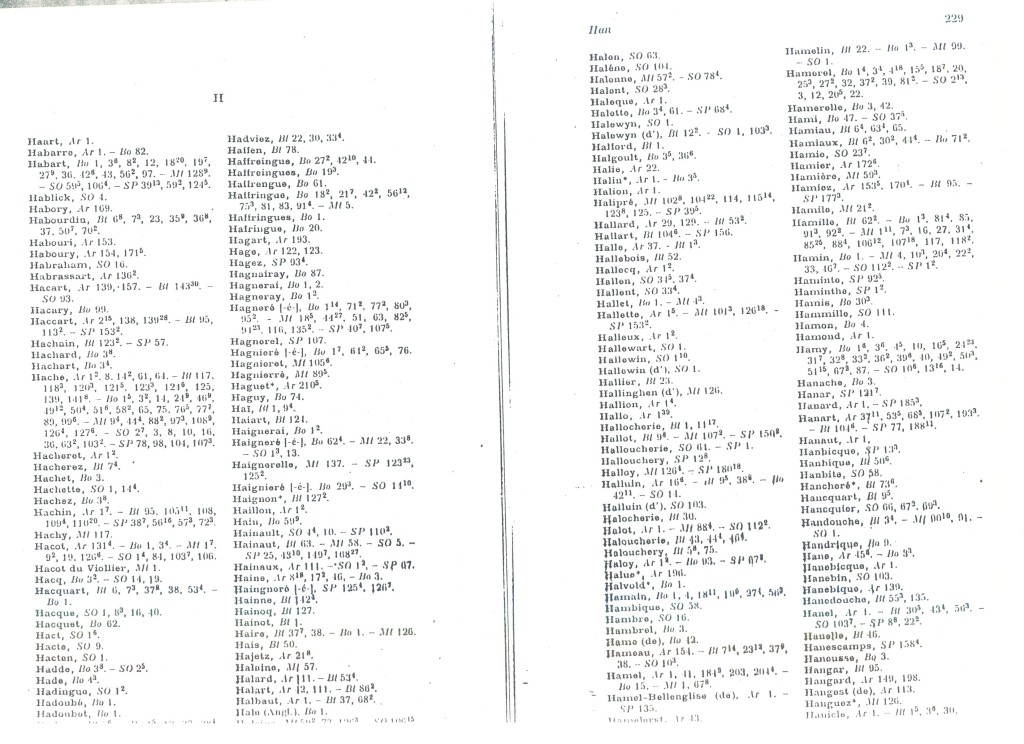 H
Haart, Ar 1.
Habarre, Ar 1. – Bo 82.
Habart, Bo 1, 3⁶, 8², 12, 18²⁰, 19⁷,
27⁹, 36, 42⁶, 43, 56², 97. – Ml 128⁹.
– SO 59⁵, 106⁴. – SP 39¹³, 59², 124⁵.
Hablick, SO 4.
Habory, Ar 169.
Habourdin, Bl 6⁸, 7³, 23, 35⁹, 36⁸,
37, 50⁷, 70².
Habouri, Ar 153.
Haboury, Ar 154, 171⁵.
Habraham, SO 16.
Habrassart, Ar 136².
Hacart, Ar 139, 157. – Bl 143³⁰. –
SO 93.
Hacary, Bo 99.
Haccart, Ar 2¹⁵, 138, 139²⁸. – Bl 95,
113². – SP 153².
Hachain, Bl 123². – SP 57.
Hachard, Bo 3⁸.
Hachart, Bo 3⁴.
Hache, Ar 1², 8, 14², 61, 64. – Bl 117,
118³, 120³, 121⁵, 123³, 124⁶, 125,
139, 141⁸. – Bo 1⁵, 3², 14, 24⁹, 46⁹,
49¹², 50⁴, 51⁶, 58², 65, 75, 76⁵, 77²,
89, 99⁶. – Ml 9⁴, 44⁴, 88², 97³, 108⁹,
126⁴, 127⁶. – SO 27, 3, 8, 10, 16,
36, 63², 103². – SP 78, 98, 104, 107³.
Hacheret, Ar 1².
Hacherez, Bl 7⁴.
Hachet, Bo 3.
Hachette, SO 1, 14⁴.
Hachez, Bo 3⁸.
Hachin, Ar 1⁷. – Bl 95, 105¹¹, 108,
109⁴, 110²⁰. – SP 38⁷, 56¹⁶, 57³, 72³.
Hachy, Ml 117.
Hacot, Ar 131⁴. – Bo 1, 3⁴. – Ml 1⁷,
9², 19, 126⁴. – SO 1⁴, 84, 103⁷, 106.
Hacot du Viollier, Ml 1.
Hacq, Bo 3². – SO 14, 19.
Hacquart, Bl 6, 7³, 37⁸, 38, 53⁴. –
Bo 1.
Hacque, SO 1, 8³, 16, 40.
Hacquet, Bo 62.
Hact, SO 1⁶.
Hacte, SO 9.
Hacten, SO 1.
Hadde, Bo 3⁸. – SO 25.
Hade, Bo 4³.
Hadingue, SO 1².
Hadoubé, Bo 1.
Hadoubet, Bo 1.
Hadviez, Bl 22, 30, 33⁴.
Haffen, Bl 78.
Haffreingue, Bo 27², 42¹⁰, 44.
Haffreingues, Bo 19³.
Haffrengue, Bo 61.
Haffringue, Bo 18², 21⁷, 42², 56¹²,
75³, 81, 83, 91⁴. – Ml 5.
Haffringues, Bo 1.
Hafringue, Bo 20.
Hagart, Ar 193.
Hage, Ar 122, 123.
Hagez, SP 93⁴.
Hagnafray, Bo 87.
Hagnerai, Bo 1, 2.
Hagneray, Bo 1².
Hagneré [-é-], Bo 1¹⁴, 71², 77², 80³,
95². – Ml 18⁵, 44²⁷, 51, 63, 82⁵,
91²³, 116, 135². – SP 40⁷, 107⁵.
Hagnerel, SP 107.
Hagnieré [-é-], Bo 1⁷, 61², 65⁵, 76.
Hagnieret, Ml 105⁶.
Hagnierré, Ml 89⁵.
Haguet*, Ar 210⁵.
Haguy, Bo 74.
Haï, Bl 1, 9⁴.
Haiart, Bl 121.
Haignerai, Bo 1².
Haigneré [-é-], Bo 62⁴. – Ml 22, 33⁸.
– SO 1³, 13.
Haignerelle, Ml 137. – SP 123²³,
125².
Haigneré [-é-], Bo 29³. – SO 14¹⁰.
Haignon*, Bl 127².
Haillon, Ar 1².
Hain, Bo 59⁹.
Hainault, SO 1⁴, 10. – SP 110³.
Hainaut, Bl 63. – Ml 58. – SO 5. –
SP 25, 43¹⁰, 149⁷, 108²⁷.
Hainaux, Ar 111. – SO 1³, – SP 67.
Haine, Ar 8¹⁸, 17², 46, – Bo 3.
Haingneré [-é-], SP 125⁴, 126³.
Hainne, Bl 142⁵.
Hainoq, Bl 127.
Hainot, Bl 1.
Haire, Bl 37⁷, 38. – Bo 1. – Ml 126.
Hais, Bl 50.
Hajetz, Ar 21⁸.
Halaine, Ml 57.
Halard, Ar 111. – Bl 53⁴.
Halart, Ar 42, 111. – Bl 86³.
Halbaut, Ar 1. – Bl 37, 68².
Hale (Angl.), Bo 1.
Han
229
Halen, SO 63.
Haléne, SO 104.
Halenne, Ml 57². – SO 78⁴.
Halent, SO 28³.
Haleque, Ar 1.
Halette, Bo 3⁴, 61. – SP 68⁴.
Halewyn, SO 1.
Halewyn (d'), Bl 12². – SO 1, 103³.
Halford, Bl 1.
Halgoult, Bo 3⁵, 36⁶.
Halie, Ar 22.
Halin*, Ar 1. – Bo 3⁵.
Halion, Ar 1.
Halipré, Ml 102⁸, 104²², 114, 115¹⁴,
123⁸, 125. – SP 39⁵.
Hallard, Ar 29, 129. – Bl 53².
Hallart, Bl 104⁶. – SP 156.
Halle, Ar 37. – Bl 1³.
Hallebois, Bl 52.
Hallecq, Ar 1².
Hallen, SO 34⁵, 37⁴.
Hallent, SO 33⁴.
Hallet, Bo 1. – Ml 4³.
Hallette, Ar 1⁵. – Ml 101³, 126¹⁸. –
SP 153².
Halleux, Ar 1².
Hallewart, SO 1.
Hallewin, SO 1¹⁰.
Hallewin (d'), SO 1.
Hallier, Bl 23.
Hallinghen (d'), Ml 126.
Hallion, Ar 1⁴.
Hallo, Ar 1³⁹.
Hallocherie, Bl 1, 11¹⁷.
Hallot, Bl 9⁶. – Ml 107³. – SP 150⁸.
Halloucherie, SO 61. – SP 1.
Hallouchery, SP 12⁸.
Halloy, Ml 126⁴. – SP 180¹⁸.
Halluin, Ar 16⁶. – Bl 9⁵, 38⁶. – Bo
42¹¹. – SO 14.
Halluin (d'), SO 103.
Halocherie, Bl 30.
Halot, Ar 1. – Ml 88⁴. – SO 112².
Haloucherie, Bl 43, 44⁴, 46⁴.
Halouchery, Bl 5⁸, 75.
Haloy, Ar 1⁸. – Bo 93. – SP 67⁸.
Halue*, Ar 196.
Halvold*, Bo 1.
Hamain, Bo 1, 4, 18¹¹, 19⁶, 27⁴, 56³.
Hambique, SO 58.
Hambre, SO 16.
Hambrel, Bo 3.
Hame (de), Bo 12.
Hameau, Ar 154. – Bl 7¹⁴, 23¹³, 37⁹,
38. – SO 10³.
Hamel, Ar 1, 41, 184³, 203, 204⁴. –
Bo 15. – Ml 1, 67⁸.
Hamel-Bellenglise (de), Ar 1. –
SP 135.
Hamelin, Bl 22. – Bo 1³. – Ml 99.
– SO 1.
Hamerel, Bo 1⁴, 3⁴, 4¹⁸, 15⁵, 18⁷, 20,
25³, 27², 32, 37², 39, 81². – SO 2¹³,
3, 12, 20⁵, 22.
Hamerelle, Bo 3, 42.
Hami, Bo 47. – SO 37⁵.
Hamiau, Bl 6⁴, 63⁴, 65.
Hamiaux, Bl 6², 30², 44⁴. – Bo 71².
Hamie, SO 23⁷.
Hamier, Ar 172⁶.
Hamière, Ml 59³.
Hamiez, Ar 153⁵, 170⁴. – Bl 95. –
SP 177³.
Hamile, Ml 21².
Hamille, Bl 62². – Bo 1³, 81⁴, 85,
91³, 92³. – Ml 1¹¹, 7³, 16, 27, 31⁴,
85²⁵, 88⁴, 106¹², 107¹⁸, 117, 118².
Hamin, Bo 1. – Ml 4, 10³, 20⁴, 22²,
33, 46⁷. – SO 112². – SP 1².
Haminte, SP 92⁵.
Haminthe, SP 1².
Hamis, Bo 30⁵.
Hammille, SO 111.
Hamon, Bo 4.
Hamond, Ar 1.
Hamy, Bo 1⁶, 3⁶, 4⁵, 10, 16⁵, 24²³,
31⁷, 32⁸, 33², 36², 39⁶, 40, 49², 50³,
51¹⁵, 67³, 87. – SO 10⁶, 13¹⁶, 14.
Hanache, Bo 3.
Hanar, SP 121⁷.
Hanard, Ar 1. – SP 185³.
Hanart, Ar 37¹¹, 53⁵, 68⁵, 107², 193³.
– Bl 104⁶. – SP 77, 188¹¹.
Hanaut, Ar 1.
Hanbicque, SP 13³.
Hanbique, Bl 50⁶.
Hanbite, SO 58.
Hancheré*, Bl 73⁶.
Hancquart, Bl 95.
Hancquier, SO 66, 67², 69³.
Handouche, Bl 3⁴. – Ml 90¹⁰, 91. –
SO 1.
Handrique, Bo 9.
Hane, Ar 45⁸. – Bo 3³.
Hanebicque, Ar 1.
Hanebin, SO 103.
Hanebique, Ar 139.
Hanedouche, Bl 55³, 135.
Hanel, Ar 1. – Bl 30⁵, 43⁴, 56³. –
SO 103⁷. – SP 8⁸, 22².
Hanelle, Bl 46.
Hanescamps, SP 158⁴.
Hanousse, Bo 3.
Hangar, Bl 95.
Hangard, Ar 149, 198.
Hangest (de), Ar 113.
Hanguez*, Ml 126.
Hanicle, Ar 1. – Bl 1⁵, 3⁶, 30.